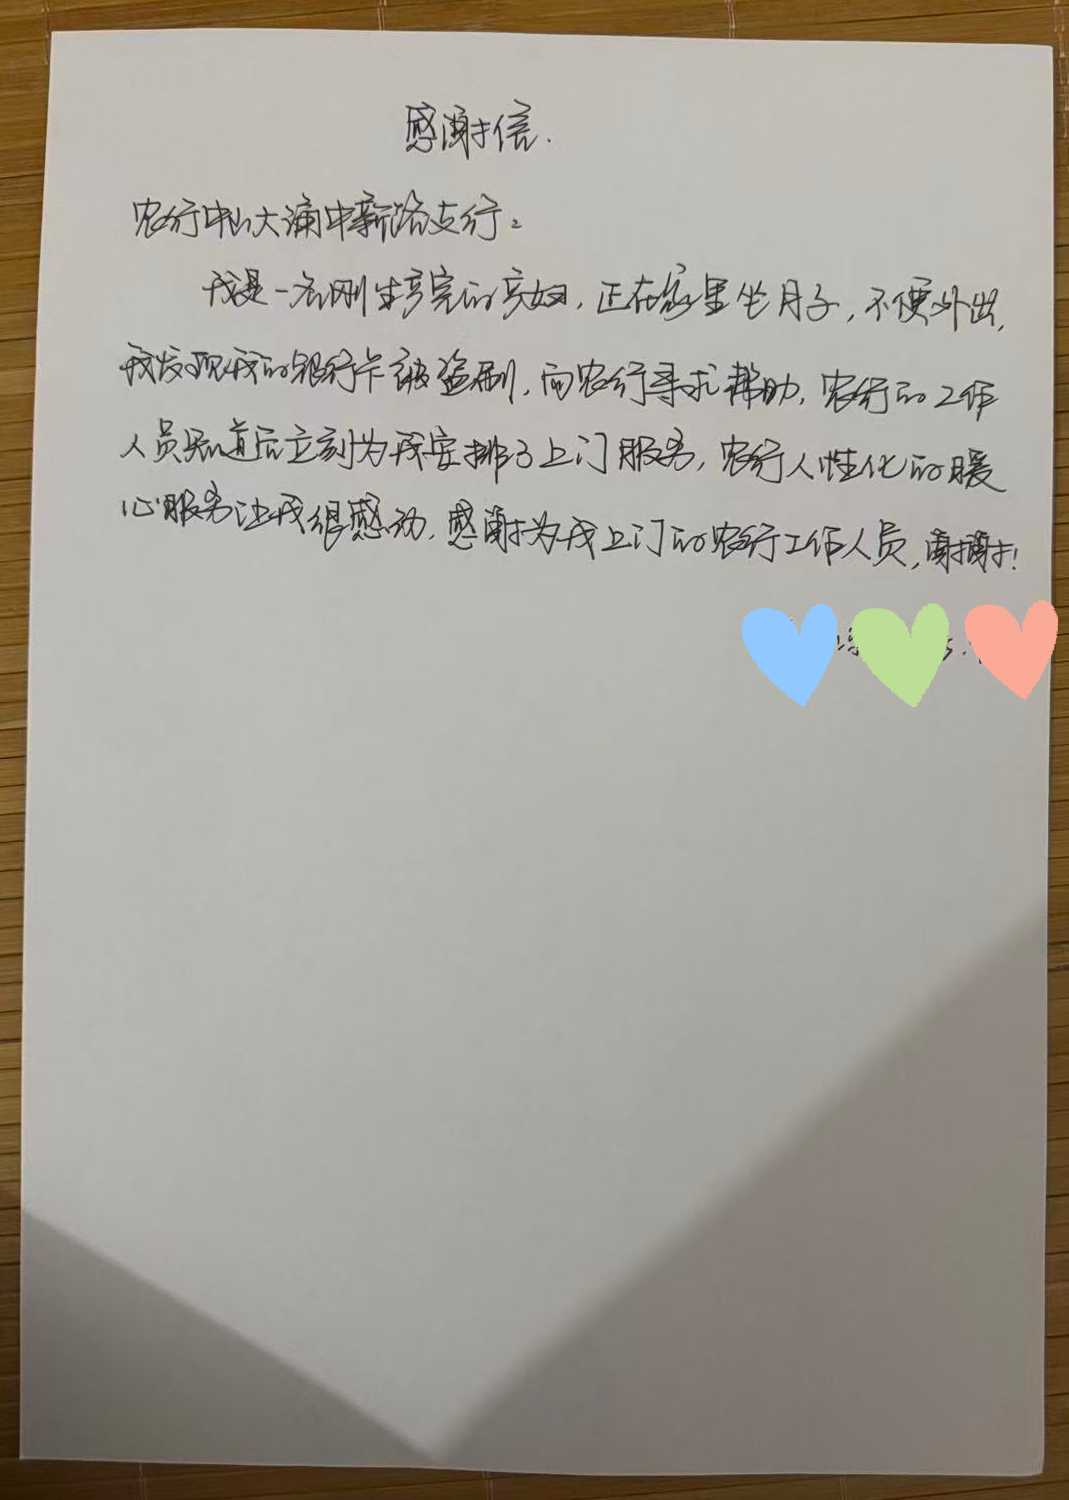 感谢信.
农行中山大涌中新路支行：
我是一名刚生产完的产妇，正在家里坐月子，不便外出，
我发现我的银行卡被盗刷，向农行寻求帮助，农行的工作
人员知道后立刻为我安排了上门服务，农行人性化的暖
心服务让我很感动，感谢为我上门的农行工作人员，谢谢！